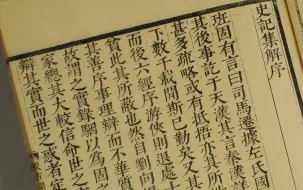 史記集解序
班固有言曰司馬遷據左氏國
其後事訖于天漢其言秦漢詳
甚多疏略或有抵梧亦其所
下數千載閒斯已勤矣又其是
而後六經序游俠則退處士
貧此其所蔽也然自劉向
其善序事理辯而不華質
故謂之實錄駰以為固之
家總其大較信命世之
辯其實而世之惑者